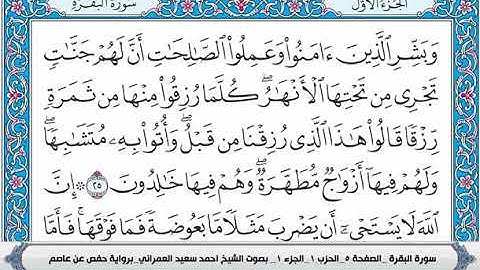 الجزء الأول
سورة البقرة
وَبَشِّرِ الَّذِينَ ءَامَنُوا وَعَمِلُوا الصَّالِحَاتِ أَنَّ لَهُمْ جَنَّاتٍ
تَجْرِى مِن تَحْتِهَا الْأَنْهَارُ ۖ كُلَّمَا رُزِقُوا مِنْهَا مِن ثَمَرَةٍ
رِّزْقًا قَالُوا هَٰذَا الَّذِى رُزِقْنَا مِن قَبْلُ ۖ وَأُتُوا بِهِۦ مُتَشَابِهًا ۖ
وَلَهُمْ فِيهَا أَزْوَاجٌ مُّطَهَّرَةٌ ۖ وَهُمْ فِيهَا خَالِدُونَ ۝٢٥ ۞ إِنَّ
اللَّهَ لَا يَسْتَحْىِۦ أَن يَضْرِبَ مَثَلًا مَّا بَعُوضَةً فَمَا فَوْقَهَا ۚ فَأَمَّا
سورة البقرة _ الصفحة ٥_ الحزب ١_ الجزء ١_ بصوت الشيخ احمد سعيد العمراني_ برواية حفص عن عاصم